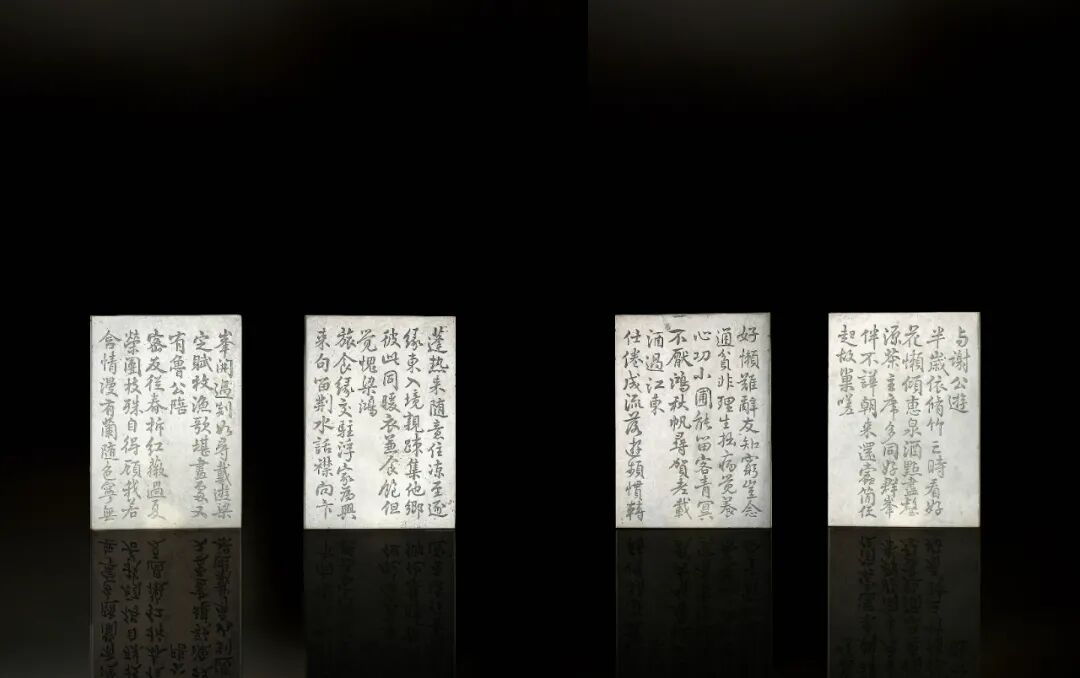 与謝公遊
半歲依脩竹三時看好
花懶傾惠泉酒點盡壑
源茶主席多同好群峯
伴不譁朝來還蠹簡便
起故巢嗟
好懶難辭友知窮豈念
通貧非理生拙病覺養
心功小圃能留客青冥
不厭鴻秋帆尋賀老載
酒過江東
仕倦成流落遊頻慣轉
蓬熱來隨意住涼至逐
緣東入境親疎集他鄉
彼此同暖衣兼食飽但
覺愧梁鴻
旅食緣交駐浮家為興
來句留荊水話襟向卞
峯開過剡如尋戴遊梁
定賦枚漁歌堪畫處又
有魯公陪
密友從春拆紅薇過夏
榮團枝殊自得顧我若
含情漫有蘭隨色寧無